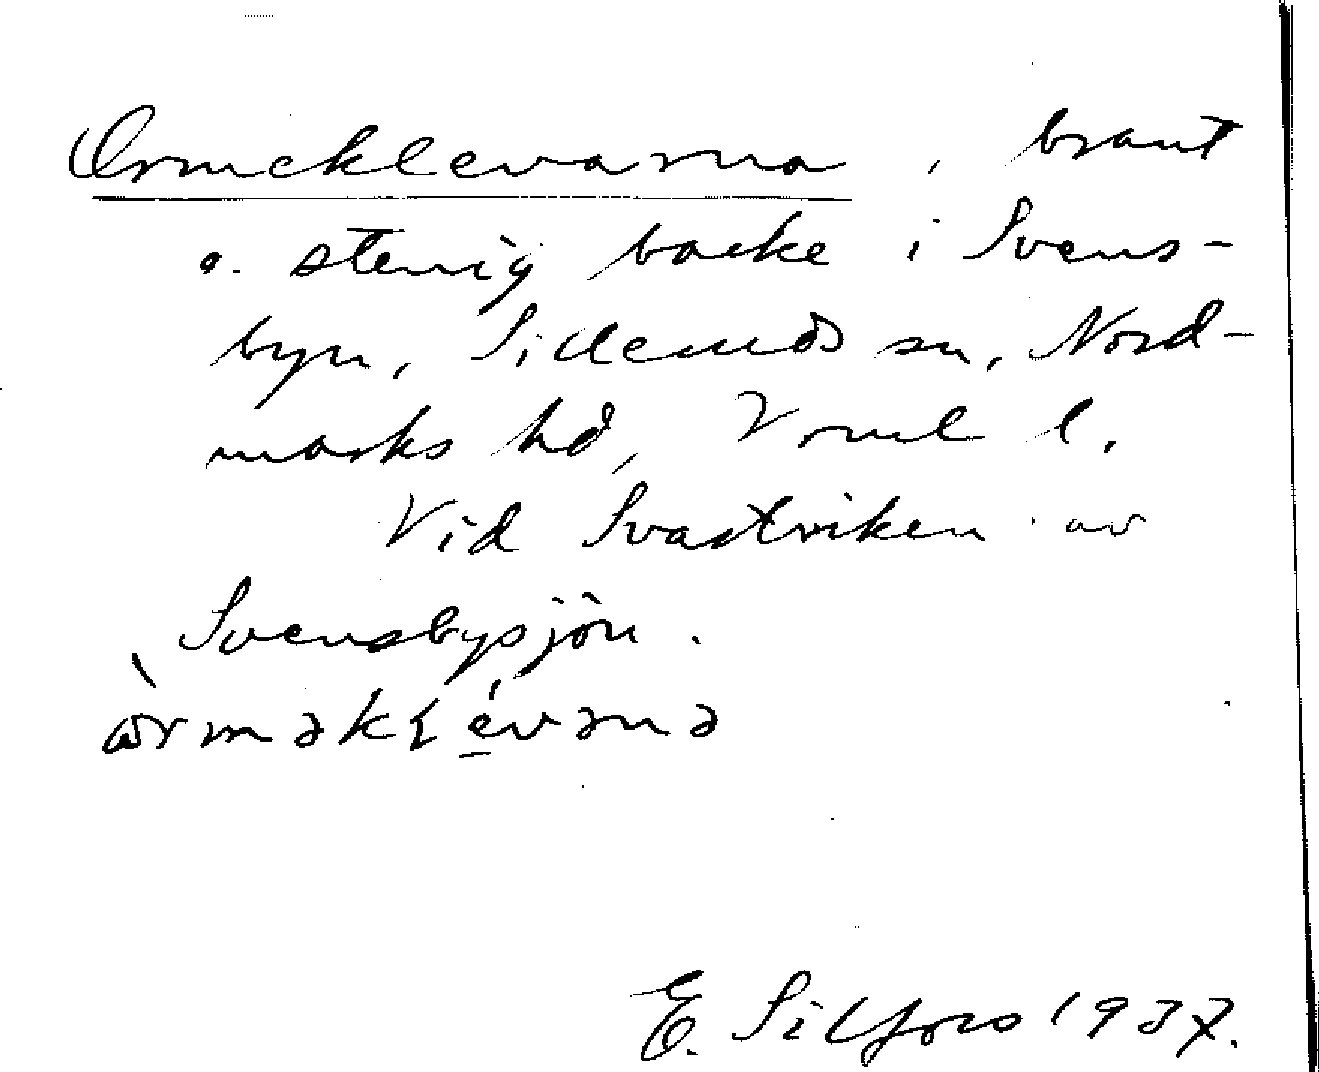 Ormeklevarna, brant
o. stenig backe i Svens-
byn, Silleruds sn, Nord-
marks hd, Vrml l.
Vid Svartviken av
Svensbysjön.
E. Silfors 1937.